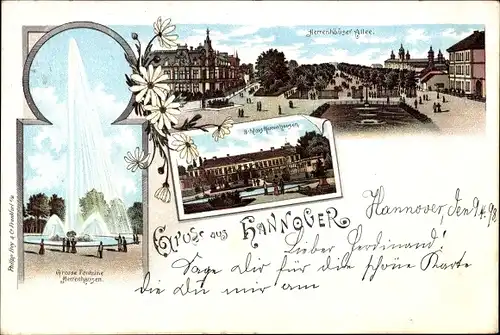 Herrenhäuser Allee.
Schloss Herrenhausen.
Grosse Fontaine
Herrenhausen.
Gruss aus Hannover
Hannover, den 9.4.98
Lieber Ferdinand!
Sage Dir für die schöne Karte
die Du mir am